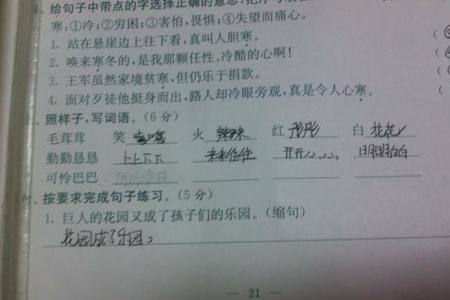 给句子中带点的字选择正确的意思
寒:①冷;②穷困;③害怕,畏惧;④失望而痛心。
1. 站在悬崖边上往下看,真叫人胆寒。
2. 唤来寒冬的,是我那颗任性、冷酷的心啊!
3. 王军虽然家境贫寒,但仍乐于捐款。
4. 面对歹徒他挺身而出,路人却冷眼旁观,真是令人心寒。
照样子,写词语。(6分)
毛茸茸 笑嘻嘻 火辣辣 红彤彤 白花花
勤勤恳恳 上上下下 来来往往 开开心心 明明白白
可怜巴巴
按要求完成句子练习。(5分)
1. 巨人的花园又成了孩子们的乐园。(缩句)
花园成了乐园。
— 21 —